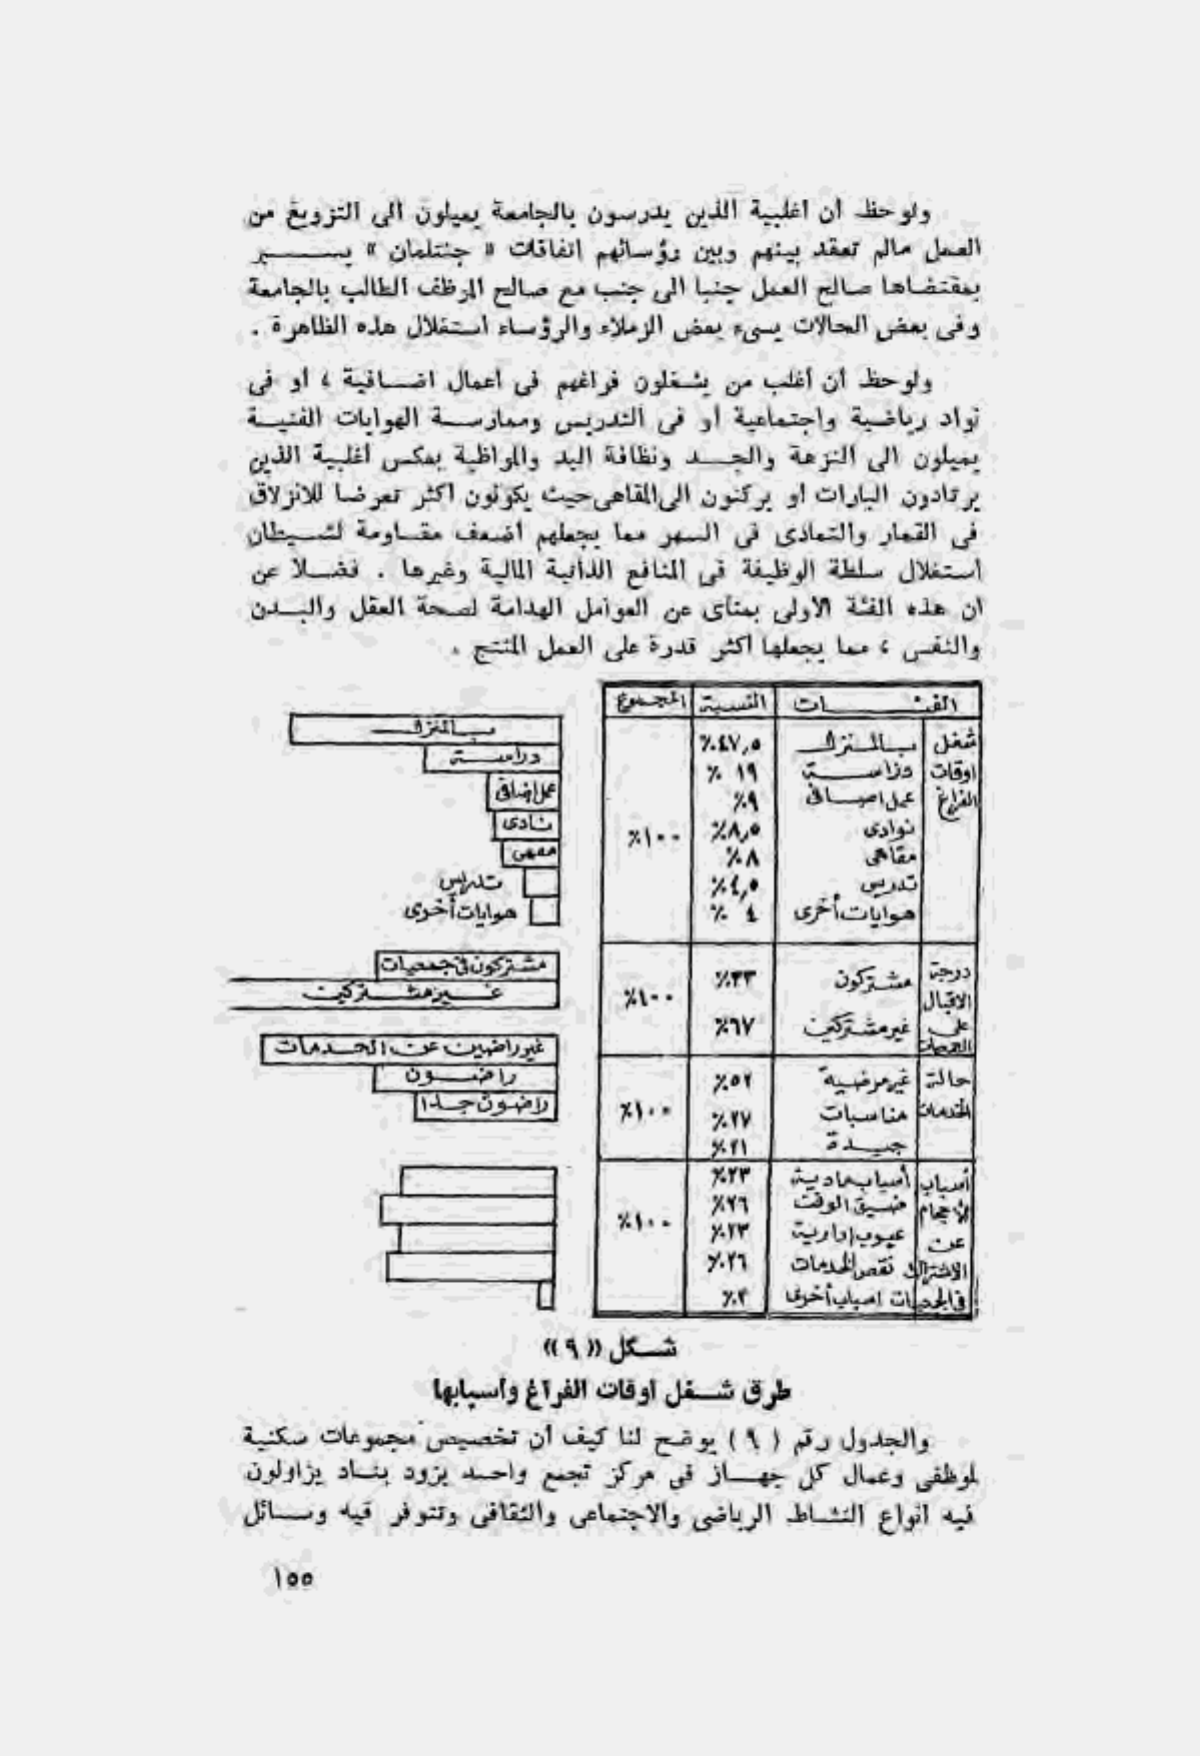 ولوحظ أن أغلبية الذين يدرسون بالجامعة يميلون الى التزويغ من
العمل مالم تعقد بينهم وبين رؤسائهم اتفاقات « جنتلمان » يسير
بمقتضاها صالح العمل جنبا الى جنب مع صالح الموظف الطالب بالجامعة
وفى بعض الحالات يسىء بعض الزملاء والرؤساء استغلال هذه الظاهرة .
ولوحظ أن أغلب من يشغلون فراغهم فى أعمال اضافية ، أو فى
نواد رياضية واجتماعية أو فى التدريس وممارسة الهوايات الفنية
يميلون الى النزهة والجد ونظافة اليد والمواظبة بعكس أغلبية الذين
يرتادون البارات أو يركنون الى المقاهى حيث يكونون أكثر تعرضا للانزلاق
فى القمار والتمادى فى السهر مما يجعلهم أضعف مقاومة لشيطان
استغلال سلطة الوظيفة فى المنافع الذاتية المالية وغيرها . فضلا عن
أن هذه الفئة الأولى بمنأى عن العوامل الهدامة لصحة العقل والبدن
والنفس ، مما يجعلها أكثر قدرة على العمل المنتج .
الفئات النسبة المجموع
شغل اوقات الفراغ
بالمنزل ٤٧,٥٪
دراسة ١٩ ٪
عمل اضافى ٩٪
نوادى ٨,٥٪ ١٠٠٪
مقاهى ٨٪
تدريس ٤,٥٪
هوايات أخرى ٤ ٪
درجة الاقبال على الجمعيات
مشتركون ٣٣٪ ١٠٠٪
غير مشتركين ٦٧٪
حالة الخدمات
غير مرضية ٥٢٪
مناسبات ٢٧٪ ١٠٠٪
جيدة ٢١٪
أسباب الاحجام عن الاشتراك فى الجمعيات
أسباب مادية ٢٣٪
ضيق الوقت ٢٦٪ ١٠٠٪
عيوب ادارية ٢٣٪
نقص الخدمات ٢٦٪
اسباب أخرى ٢٪
بالمنزل
دراسة
عمل اضافى
نادى
مقهى
تدريس
هوايات أخرى
مشتركون فى جمعيات
غير مشتركين
غير راضين عن الخدمات
راضون
راضون جدا
شكل « ٩ »
طرق شغل أوقات الفراغ وأسبابها
والجدول رقم ( ٩ ) يوضح لنا كيف أن تخصيص مجموعات سكنية
لموظفى وعمال كل جهاز فى مركز تجمع واحد يزود بناد يزاولون
فيه أنواع النشاط الرياضى والاجتماعى والثقافى وتتوفر فيه وسائل
١٥٥